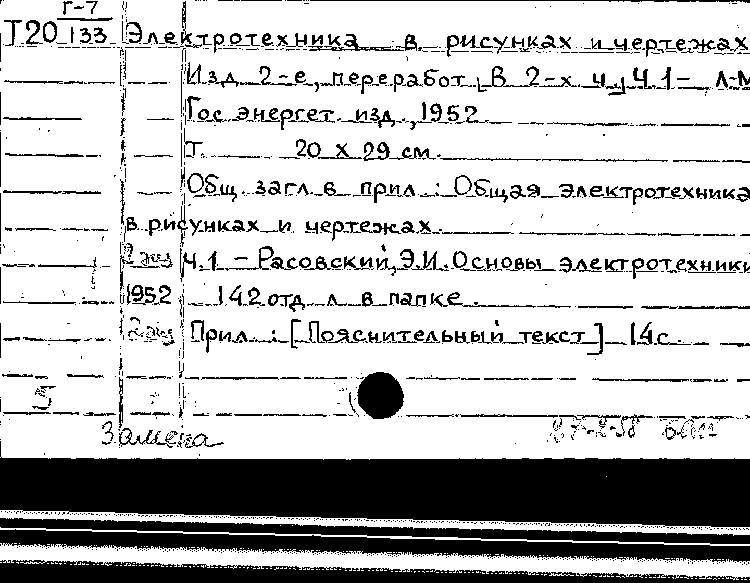 Г-7
Т20 133 Электротехника в рисунках и чертежах
Изд 2-е, переработ. В 2-х ч., Ч.1- Л-М
Гос энергет. изд., 1952
т. 20 х 29 см.
Общ. загл. в прил.: Общая электротехника
в рисунках и чертежах.
2 экз Ч.1 - Расовский, Э.И. Основы электротехники
1952 142 отд л в папке.
2 экз Прил.: [Пояснительный текст] 14с
5
Замена 27-2-58